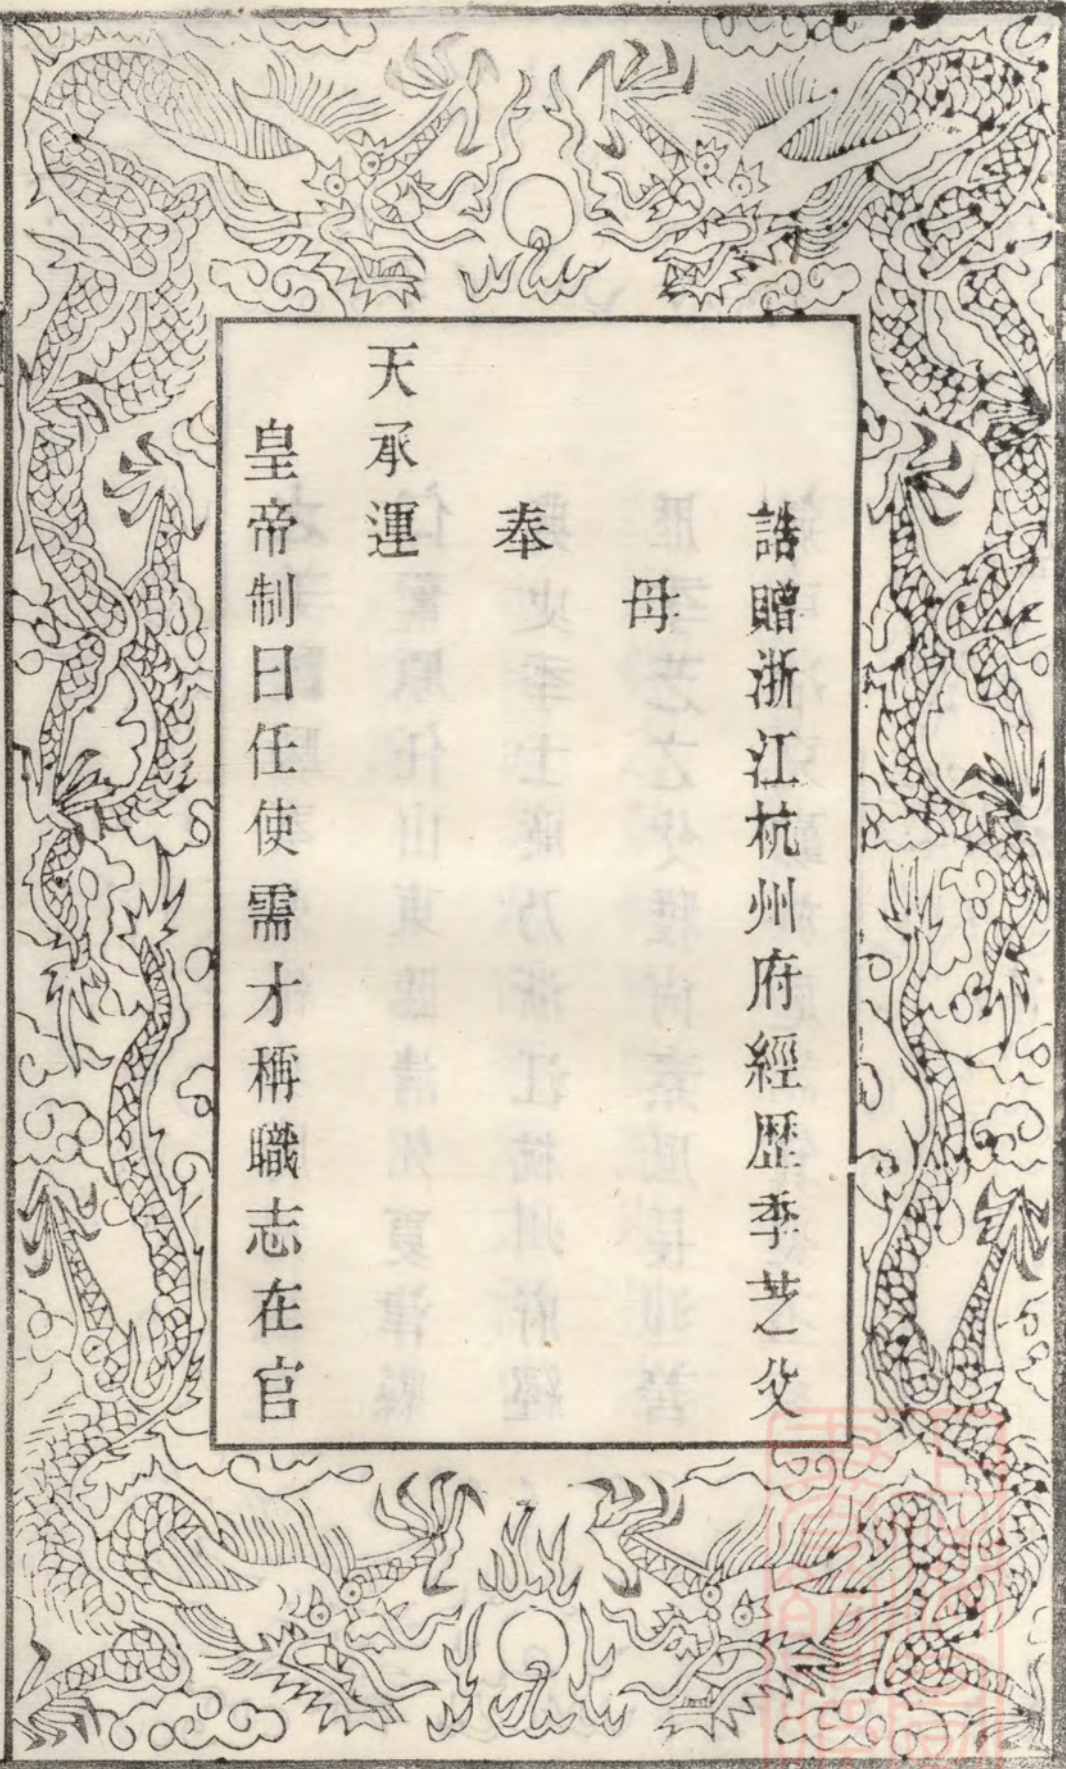 誥贈浙江杭州府經歷季芝父
母
奉
天承運
皇帝制曰任使需才稱職志在官